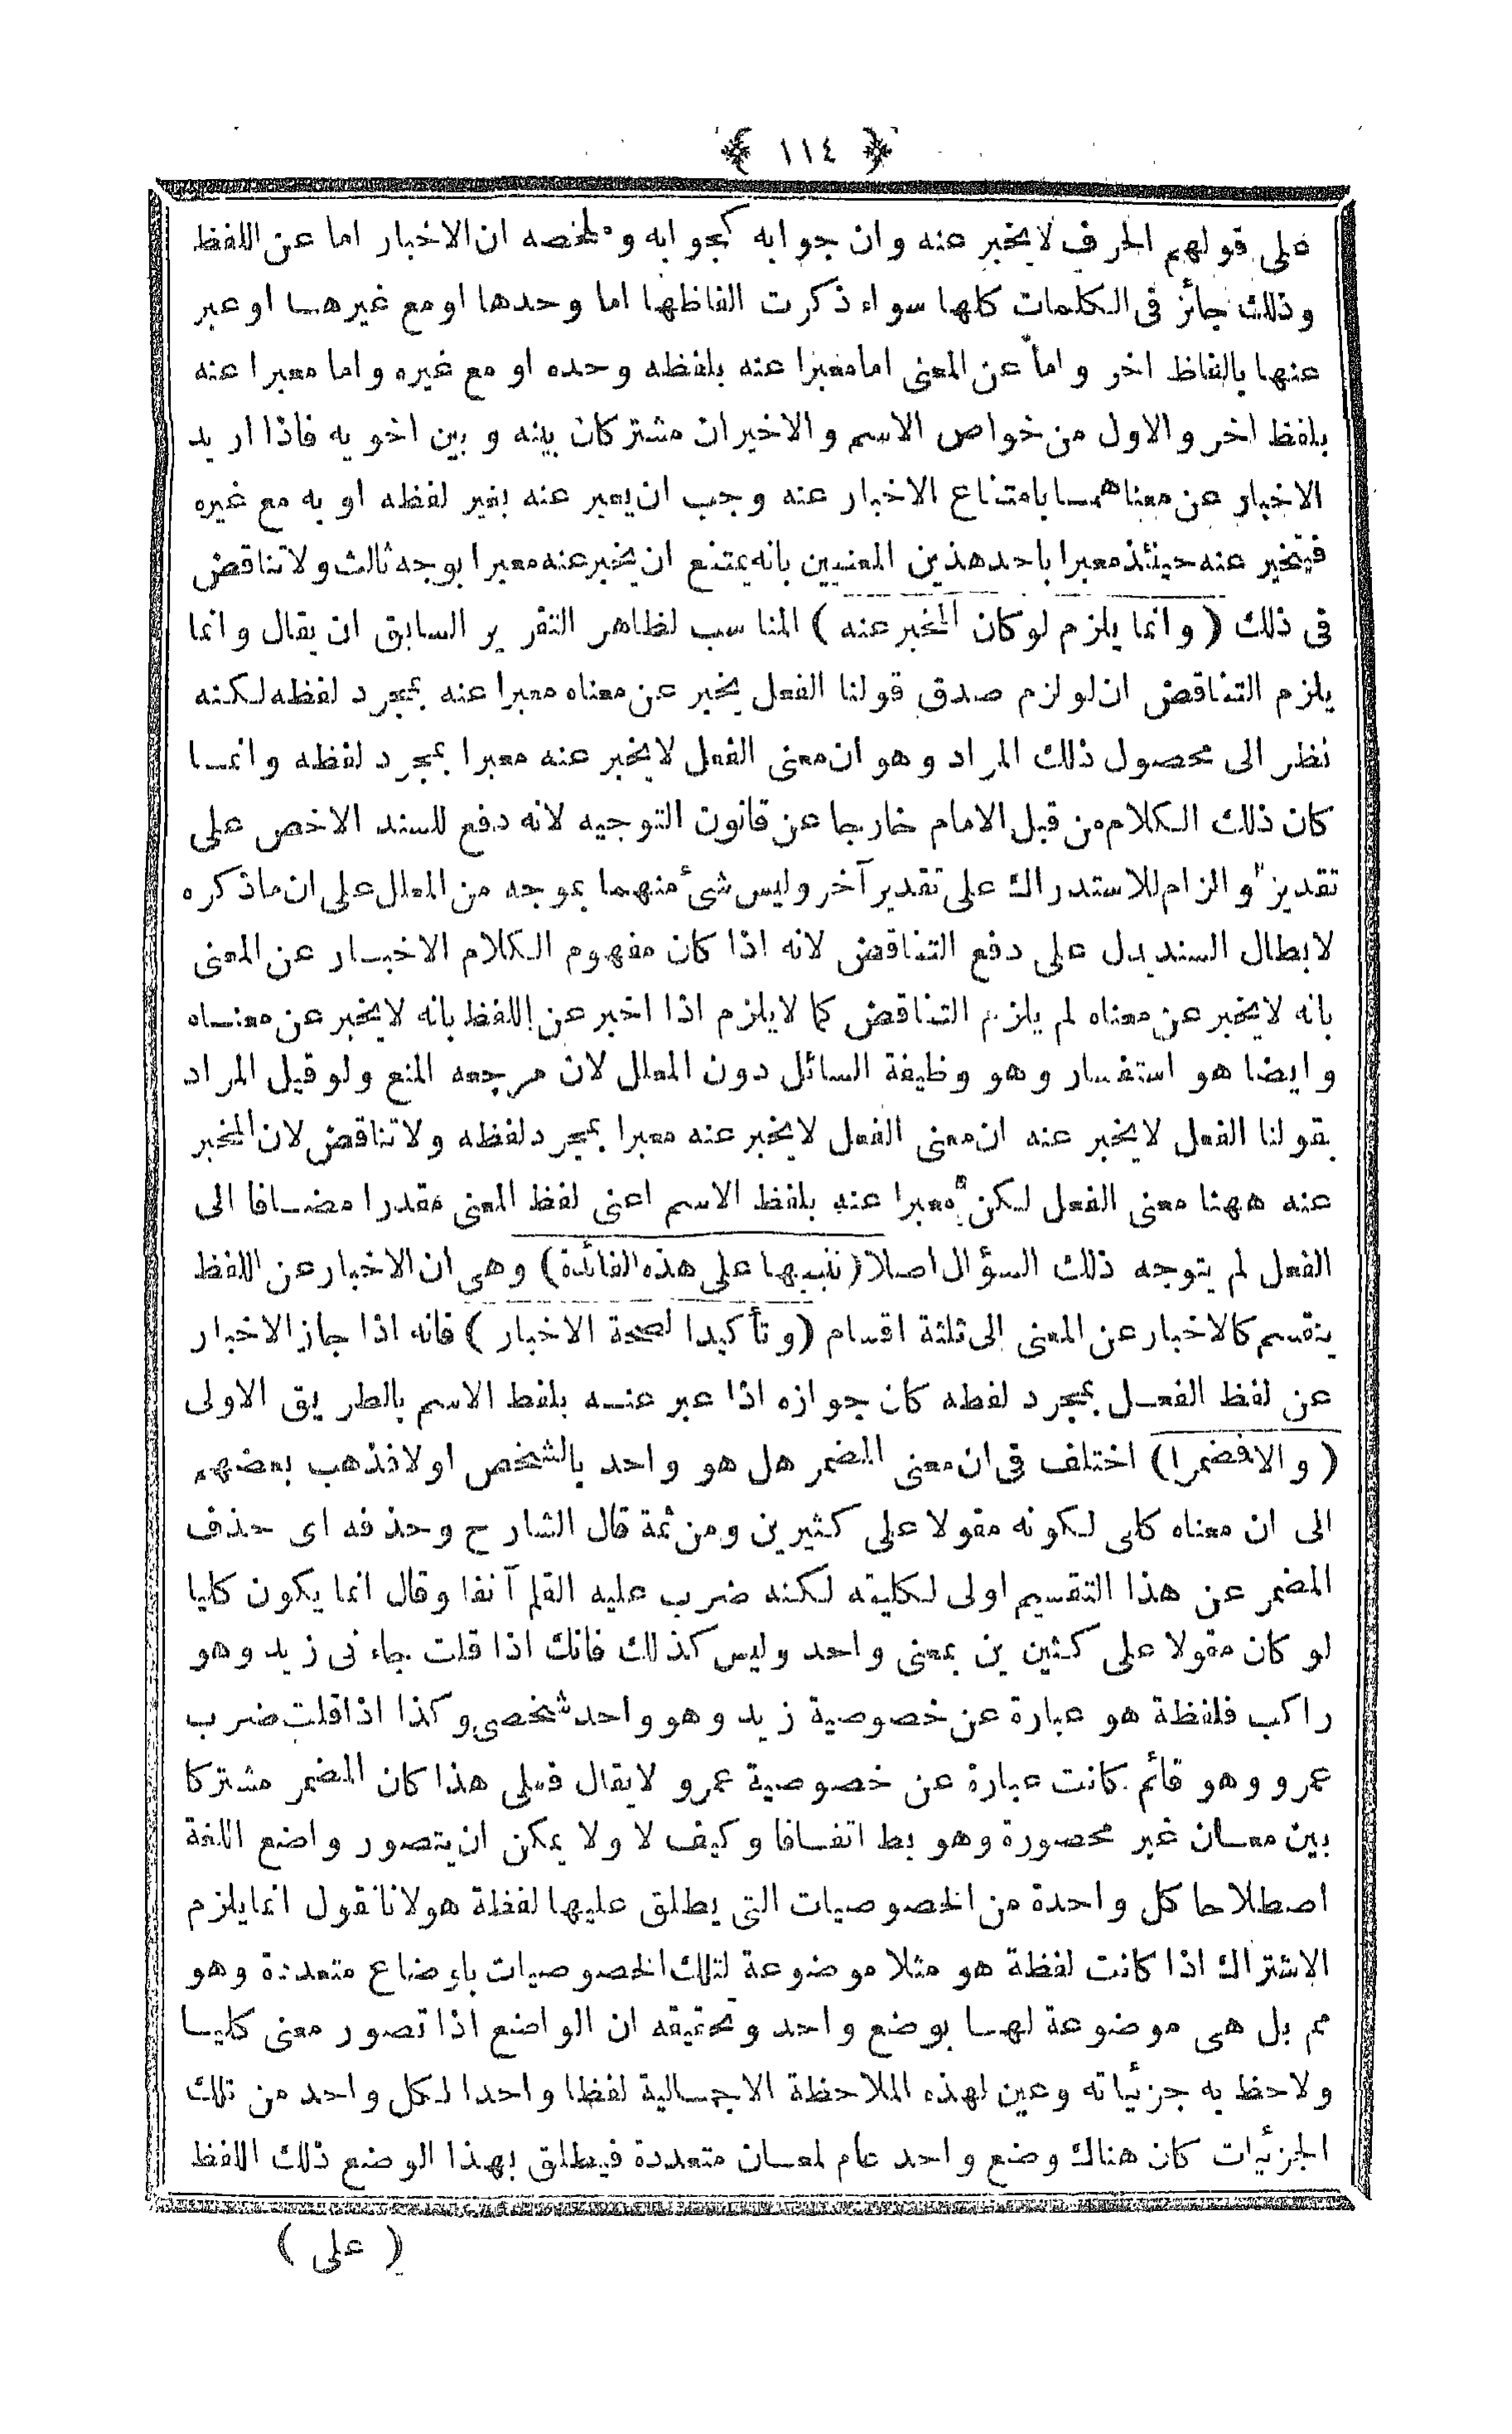 ﴿ ١١٤ ﴾
على قولهم الحرف لا يخبر عنه وان جوابه كجوابه وملخصه ان الاخبار اما عن اللفظ
وذلك جائز فى الكلمات كلها سواء ذكرت الفاظها اما وحدها او مع غيرها او عبر
عنها بالفاظ اخر واما عن المعنى اما معبرا عنه بلفظه وحده او مع غيره واما معبرا عنه
بلفظ اخر والاول من خواص الاسم والاخيران مشتركان بينه وبين اخويه فاذا اريد
الاخبار عن معناهما بامتناع الاخبار عنه وجب ان يعبر عنه بغير لفظه او به مع غيره
فيخبر عنه حينئذ معبرا باحد هذين المعنيين بانه يمتنع ان يخبر عنه معبرا بوجه ثالث ولا تناقض
فى ذلك ( وانما يلزم لو كان المخبر عنه ) المناسب لظاهر التقرير السابق ان يقال وانما
يلزم التناقض ان لو لزم صدق قولنا الفعل يخبر عن معناه معبرا عنه بمجرد لفظه لكنه
نظر الى محصول ذلك المراد وهو ان معنى الفعل لا يخبر عنه معبرا بمجرد لفظه وانما
كان ذلك الكلام من قبل الامام خارجا عن قانون التوجيه لانه دفع للسند الاخص على
تقدير والزام للاستدراك على تقدير آخر وليس شئ منهما بموجه من المعلل على ان ماذكره
لابطال السند يدل على دفع التناقض لانه اذا كان مفهوم الكلام الاخبار عن المعنى
بانه لا يخبر عن معناه لم يلزم التناقض كما لا يلزم اذا اخبر عن اللفظ بانه لا يخبر عن معناه
وايضا هو استفسار وهو وظيفة السائل دون المعلل لان مرجعه المنع ولو قيل المراد
بقولنا الفعل لا يخبر عنه ان معنى الفعل لا يخبر عنه معبرا بمجرد لفظه ولا تناقض لان المخبر
عنه ههنا معنى الفعل لكن معبرا عنه بلفظ الاسم اعنى لفظ المعنى مقدرا مضافا الى
الفعل لم يتوجه ذلك السؤال اصلا ( تنبيها على هذه الفائدة ) وهى ان الاخبار عن اللفظ
ينقسم كالاخبار عن المعنى الى ثلثة اقسام ( وتأكيدا لصحة الاخبار ) فانه اذا جاز الاخبار
عن لفظ الفعل بمجرد لفظه كان جوازه اذا عبر عنه بلفظ الاسم بالطريق الاولى
( والا فضمرا ) اختلف فى ان معنى المضمر هل هو واحد بالشخص او لا فذهب بعضهم
الى ان معناه كلى لكونه مقولا على كثيرين ومن ثمة قال الشارح وحذفه اى حذف
المضمر عن هذا التقسيم اولى لكليته لكنه ضرب عليه القلم آنفا وقال انما يكون كليا
لو كان مقولا على كثيرين بمعنى واحد وليس كذلك فانك اذا قلت جاءنى زيد وهو
راكب فلفظة هو عبارة عن خصوصية زيد وهو واحد شخصى وكذا اذا قلت ضرب
عمرو وهو قائم كانت عبارة عن خصوصية عمرو لا يقال فعلى هذا كان المضمر مشتركا
بين معان غير محصورة وهو بط اتفاقا وكيف لا ولا يمكن ان يتصور واضع اللغة
اصطلاحا كل واحدة من الخصوصيات التى يطلق عليها لفظة هو لانا نقول انما يلزم
الاشتراك اذا كانت لفظة هو مثلا موضوعة لتلك الخصوصيات باوضاع متعددة وهو
مم بل هى موضوعة لها بوضع واحد وتحقيقه ان الواضع اذا تصور معنى كليا
ولاحظ به جزئياته وعين لهذه الملاحظة الاجمالية لفظا واحدا لكل واحد من تلك
الجزئيات كان هناك وضع واحد عام لمعان متعددة فيطلق بهذا الوضع ذلك اللفظ
( على )